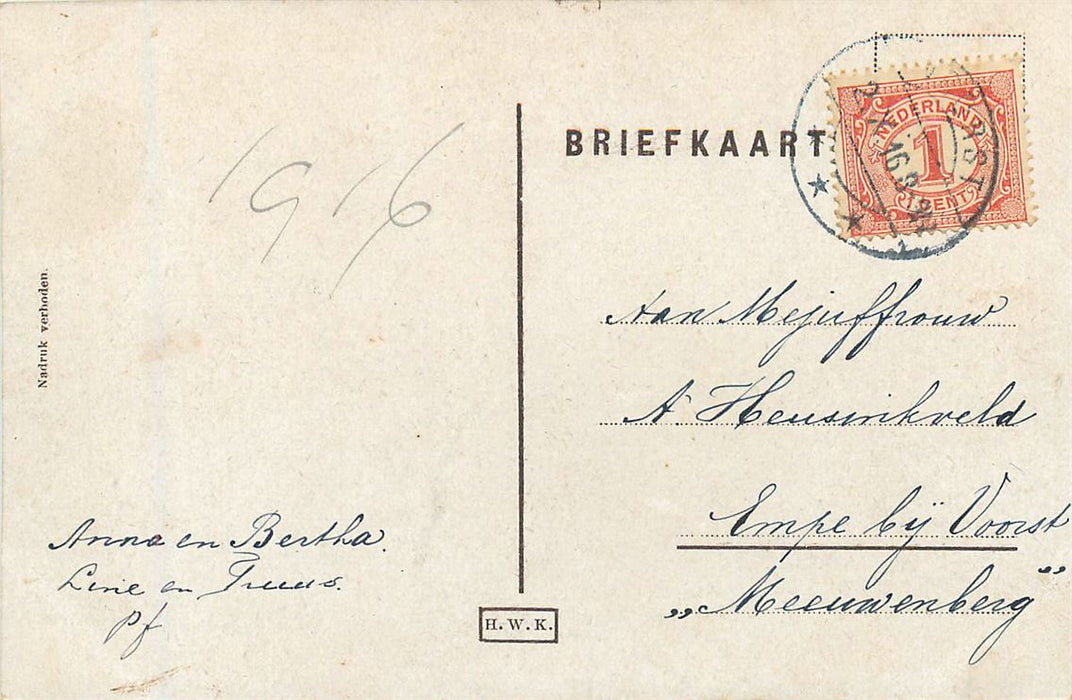 1916
Nadruk verboden.
Anna en Bertha.
Line en Truus.
pf
BRIEFKAART
NEDERLAND
1
CENT
16
Aan Mejuffrouw
A. Heusinkveld
Empe bÿ Voorst
„Meeuwenberg”
H. W. K.